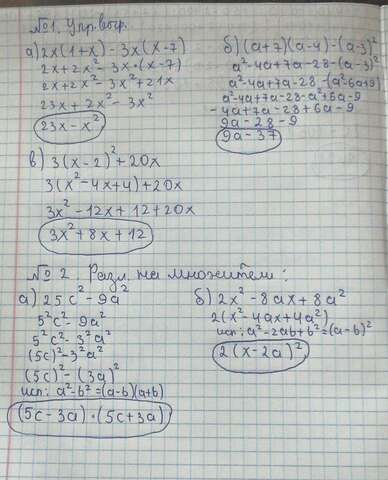 №1. Упр. выр.
а) 2x(1+x) - 3x(x-7)
2x+2x² - 3x·(x-7)
2x+2x² - 3x²+21x
23x + 2x² - 3x²
23x - x²
б) (a+7)(a-4) - (a-3)²
a²-4a+7a-28-(a-3)²
a²-4a+7a-28-(a²-6a+9)
a²-4a+7a-28-a²+6a-9
-4a+7a-28+6a-9
9a-28-9
9a-37
в) 3(x-2)²+20x
3(x²-4x+4)+20x
3x²-12x+12+20x
3x²+8x+12
№2. Разл. на множители:
а) 25c²-9a²
5²c²-9a²
5²c²-3²a²
(5c)²-3²a²
(5c)²-(3a)²
исп: a²-b²=(a-b)(a+b)
(5c-3a)·(5c+3a)
б) 2x²-8ax+8a²
2(x²-4ax+4a²)
исп: a²-2ab+b²=(a-b)²
2(x-2a)²